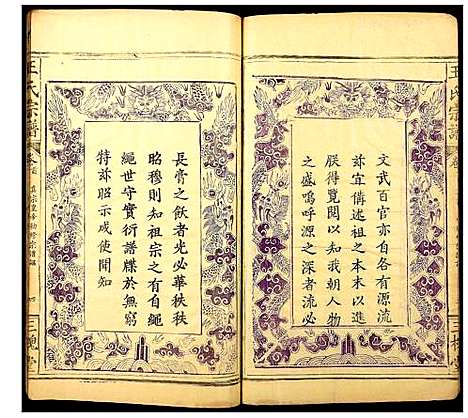 文武百官亦自各有源流
茲宜備述祖之本末以進
朕得覽閱以知我朝人物
之盛嗚呼源之深者流必
長膏之飲者光必華秩秩
昭穆則知祖宗之有自繩
繩世守實衍譜牒於無窮
特茲昭示咸使聞知
王氏宗譜
卷首
四
三槐堂
王氏宗譜
三槐堂